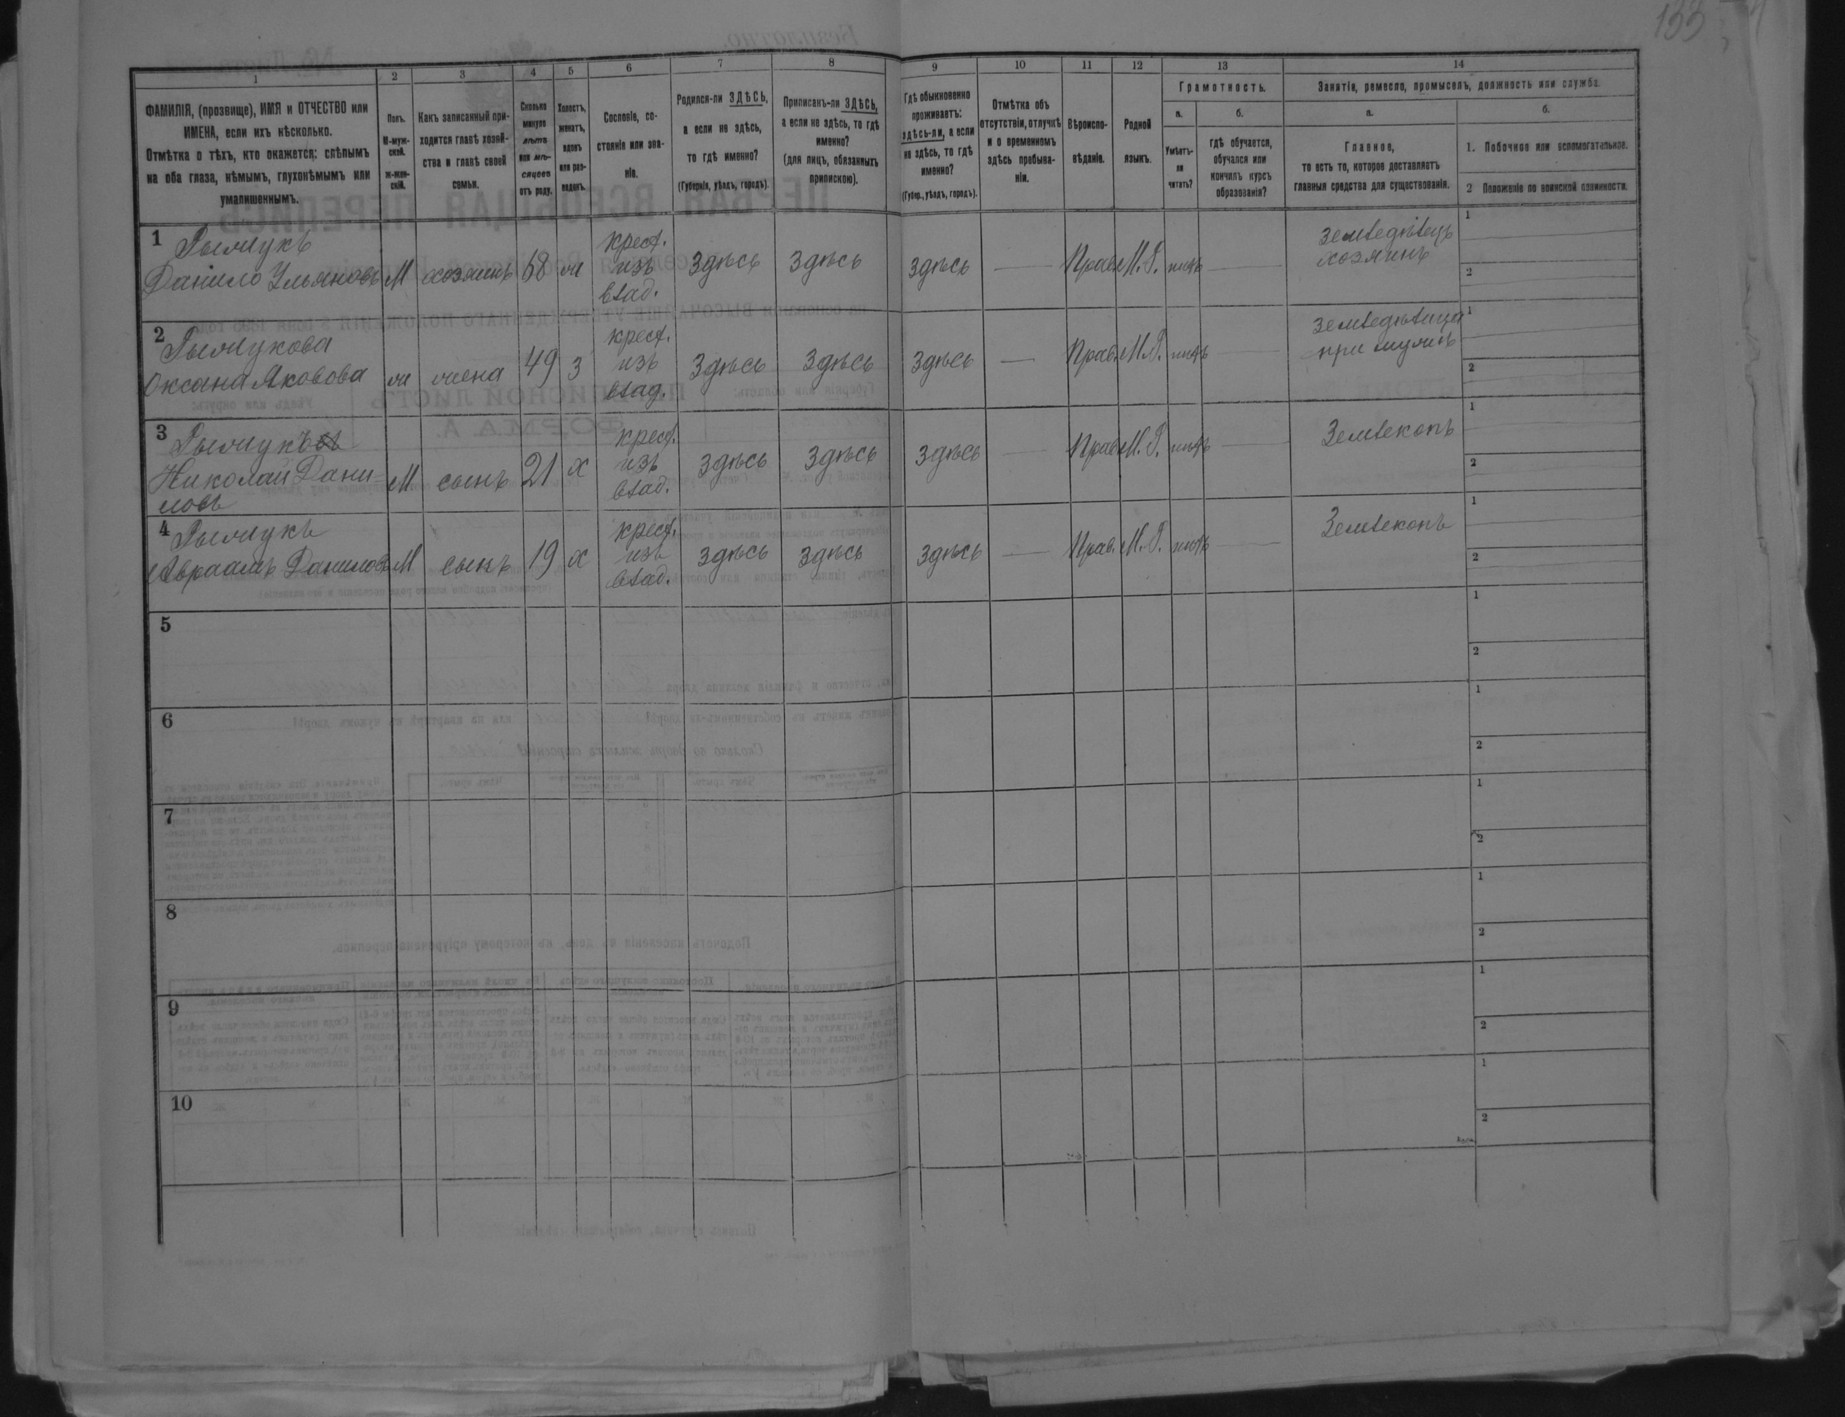 133
1 2 3 4 5 6 7 8 9 10 11 12 13 14
ФАМИЛІЯ, (прозвище), ИМЯ и ОТЧЕСТВО или
ИМЕНА, если ихъ нѣсколько.
Отмѣтка о тѣхъ, кто окажется: слѣпымъ
на оба глаза, нѣмымъ, глухонѣмымъ или
умалишеннымъ.
Полъ.
М-муж-
ской.
ж-жен-
скій.
Какъ записанный при-
ходится главѣ хозяй-
ства и главѣ своей
семьи.
Сколько
минуло
лѣтъ
или мѣ-
сяцевъ
отъ роду.
Холостъ,
женатъ,
вдовъ
или раз-
веденъ.
Сословіе, со-
стояніе или зва-
ніе.
Родился-ли ЗДѢСЬ,
а если не здѣсь,
то гдѣ именно?
(Губернія, уѣздъ, городъ).
Приписанъ-ли ЗДѢСЬ,
а если не здѣсь, то гдѣ
именно?
(для лицъ, обязанныхъ
припискою).
Гдѣ обыкновенно
проживаетъ:
здѣсь-ли, а если
не здѣсь, то гдѣ
именно?
(Губер., уѣздъ, городъ).
Отмѣтка объ
отсутствіи, отлучкѣ
и о временномъ
здѣсь пребыва-
ніи.
Вѣроиспо-
вѣданіе.
Родной
языкъ.
Грамотность.
а.
Умѣетъ-
ли
читать?
б.
гдѣ обучается,
обучался или
кончилъ курсъ
образованія?
Занятіе, ремесло, промыселъ, должность или служба.
а.
Главное,
то есть то, которое доставляетъ
главныя средства для существованія.
б.
1. Побочное или вспомогательное.
2 Положеніе по воинской повинности.
1
Данило Ульяновъ М хозяинъ 68 ж крест. изъ влад. Здѣсь Здѣсь Здѣсь — Прав. М.Р. нѣтъ — земледѣлецъ хозяинъ 1 2
2
Оксана Яковова ж жена 49 З крест. изъ влад. Здѣсь Здѣсь Здѣсь — Прав. М.Р. нѣтъ — земледѣлица при мужѣ 1 2
3
Николай Дани-
ловъ М сынъ 21 х крест. изъ влад. Здѣсь Здѣсь Здѣсь — Прав. М.Р. нѣтъ — Землекопъ 1 2
4
Авраамъ Даниловъ М сынъ 19 х крест. изъ влад. Здѣсь Здѣсь Здѣсь — Прав. М.Р. нѣтъ — Землекопъ 1 2
5 1 2
6 1 2
7 1 2
8 1 2
9 1 2
10 1 2